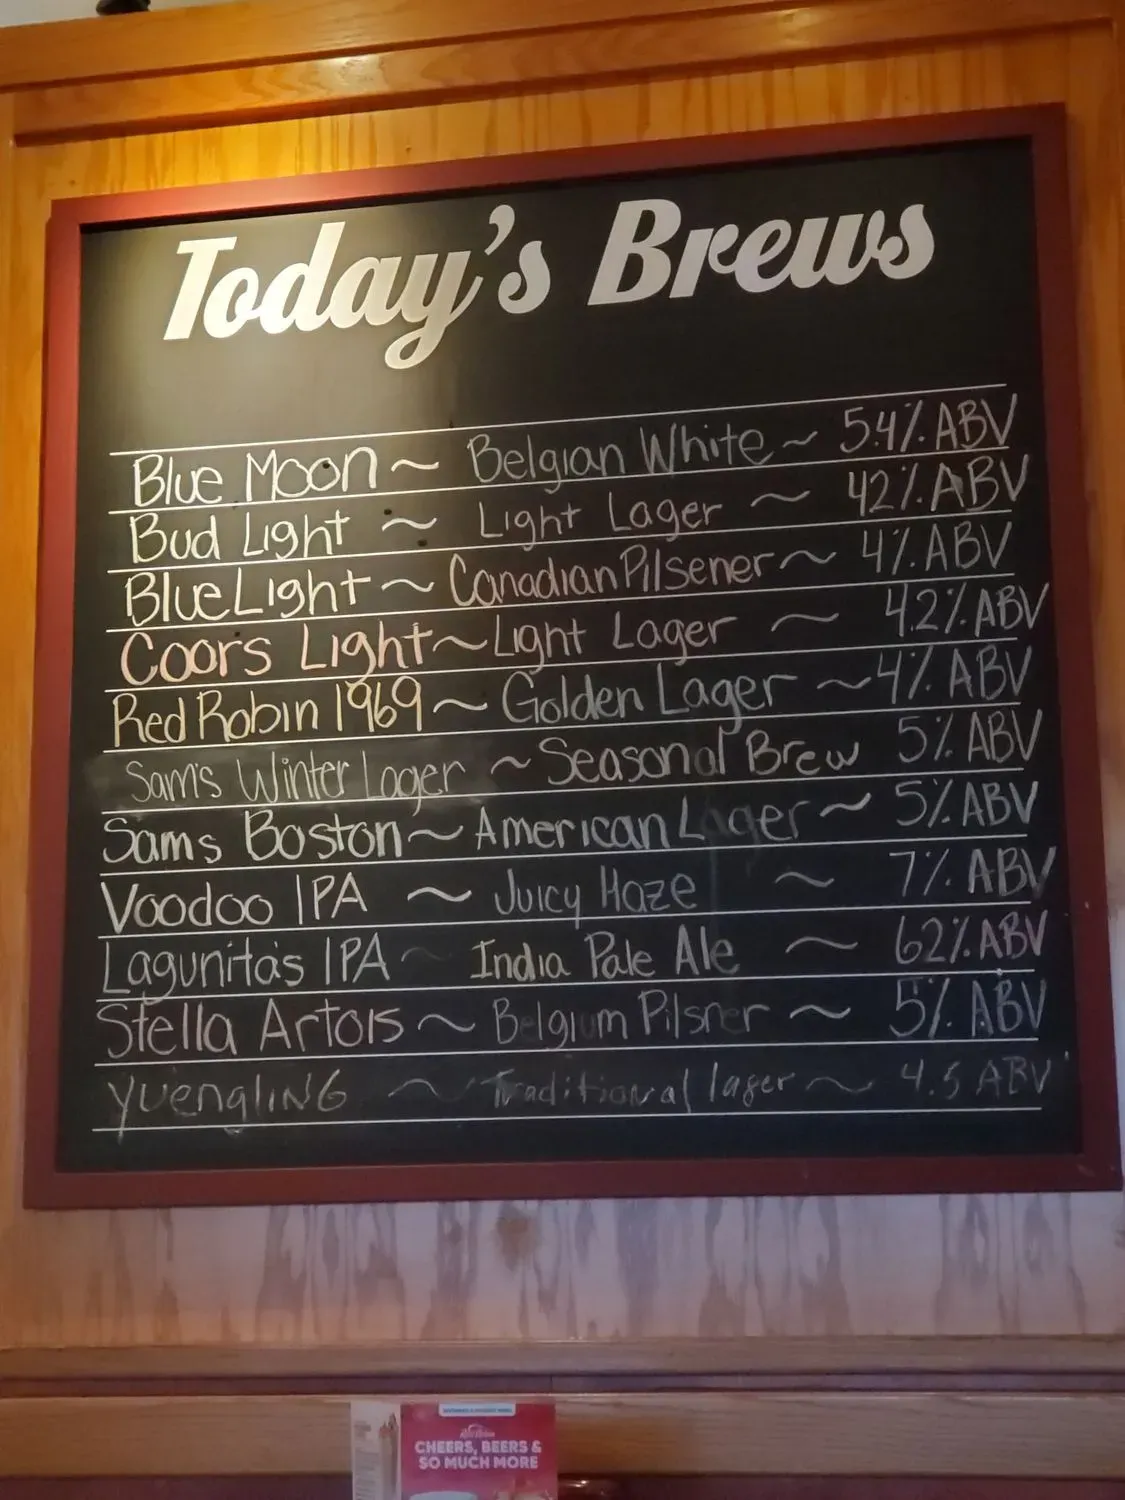 Today's Brews
Blue Moon ~ Belgian White ~ 5.4% ABV
Bud Light ~ Light Lager ~ 42% ABV
Blue Light ~ Canadian Pilsener ~ 4% ABV
Coors Light ~ Light Lager ~ 4.2% ABV
Red Robin 1969 ~ Golden Lager ~ 4% ABV
Sam's Winter Lager ~ Seasonal Brew 5% ABV
Sams Boston ~ American Lager ~ 5% ABV
Voodoo IPA ~ Juicy Haze ~ 7% ABV
Lagunita's IPA ~ India Pale Ale ~ 62% ABV
Stella Artois ~ Belgium Pilsner ~ 5% ABV
YUENGLING ~ Traditional lager ~ 4.5 ABV
Red Robin
CHEERS, BEERS &
SO MUCH MORE